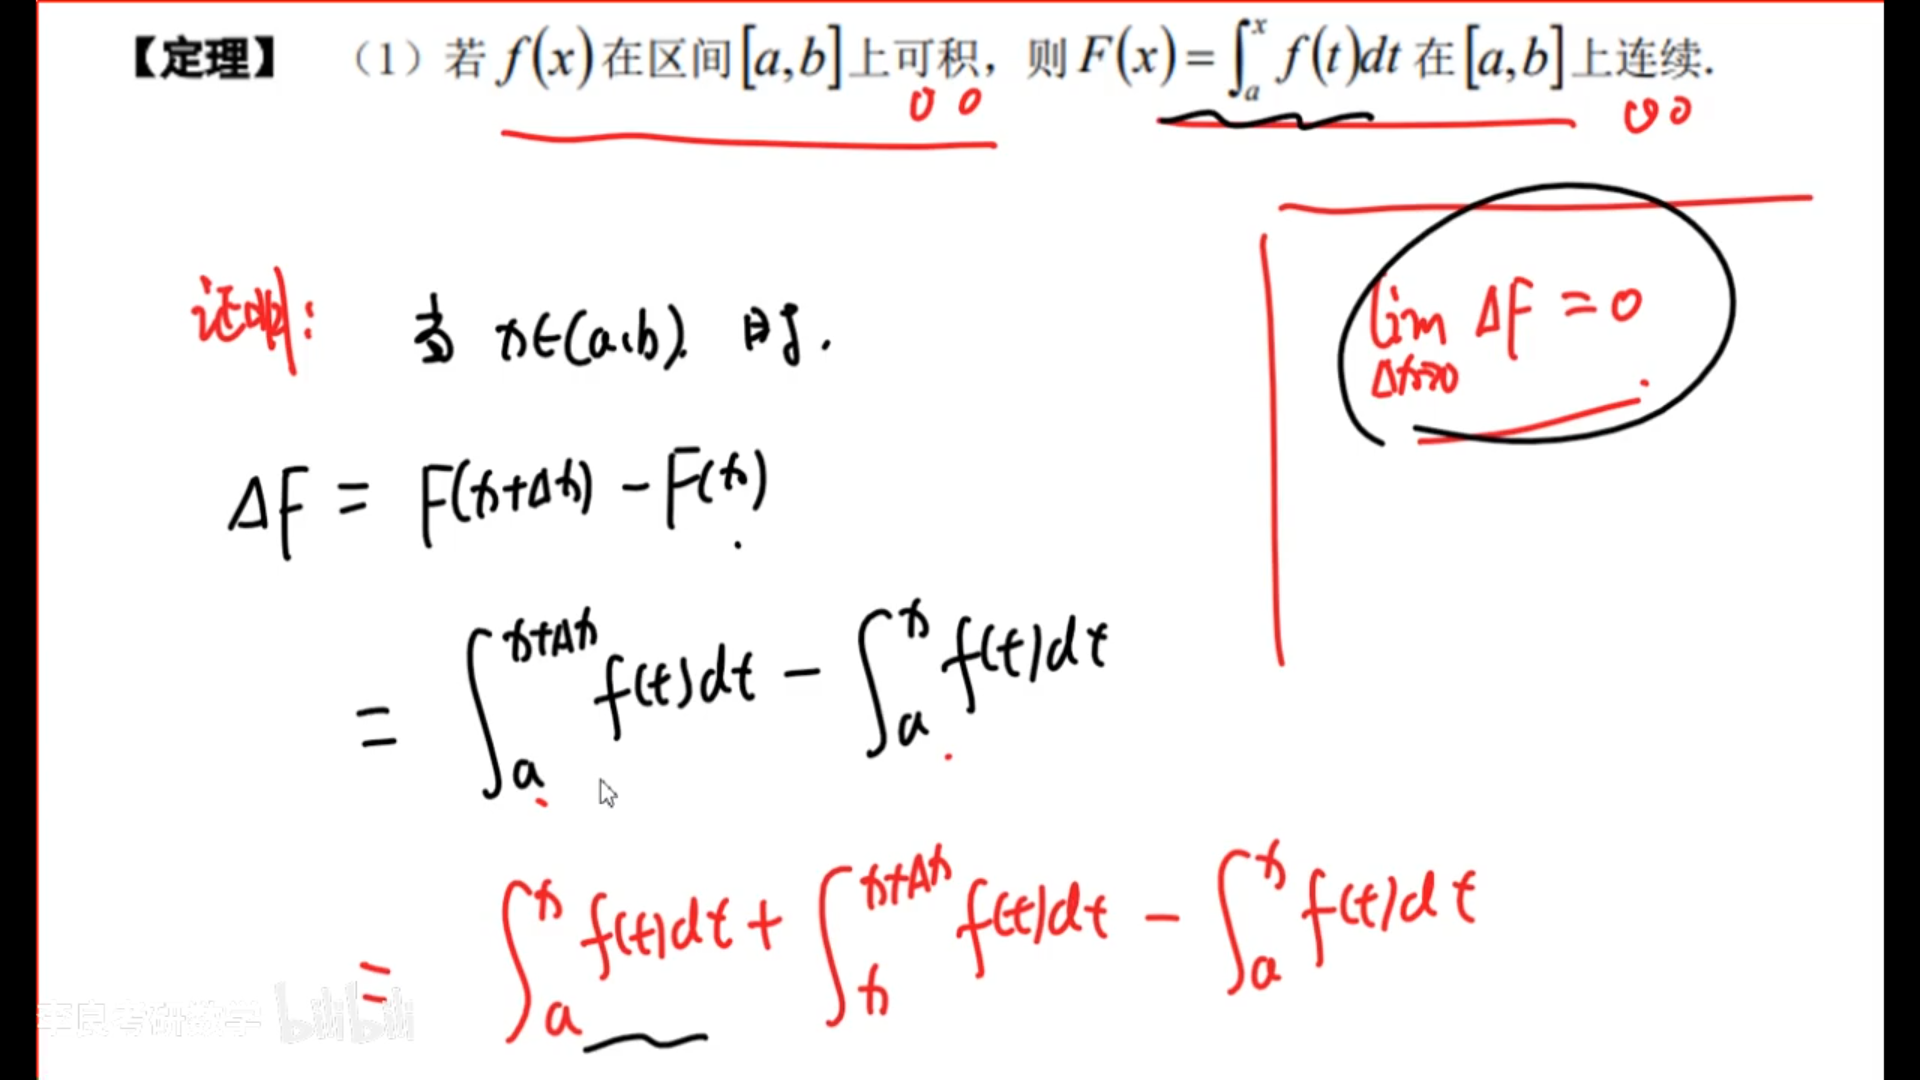 【定理】 (1) 若 f(x) 在区间 [a,b] 上可积, 则 F(x) = ∫_a^x f(t)dt 在 [a,b] 上连续.
证明: 当 x∈(a,b). 时.
lim_{Δx→0} ΔF = 0
ΔF = F(x+Δx) - F(x)
= ∫_a^{x+Δx} f(t)dt - ∫_a^x f(t)dt
= ∫_a^x f(t)dt + ∫_x^{x+Δx} f(t)dt - ∫_a^x f(t)dt
李良考研数学 bilibili